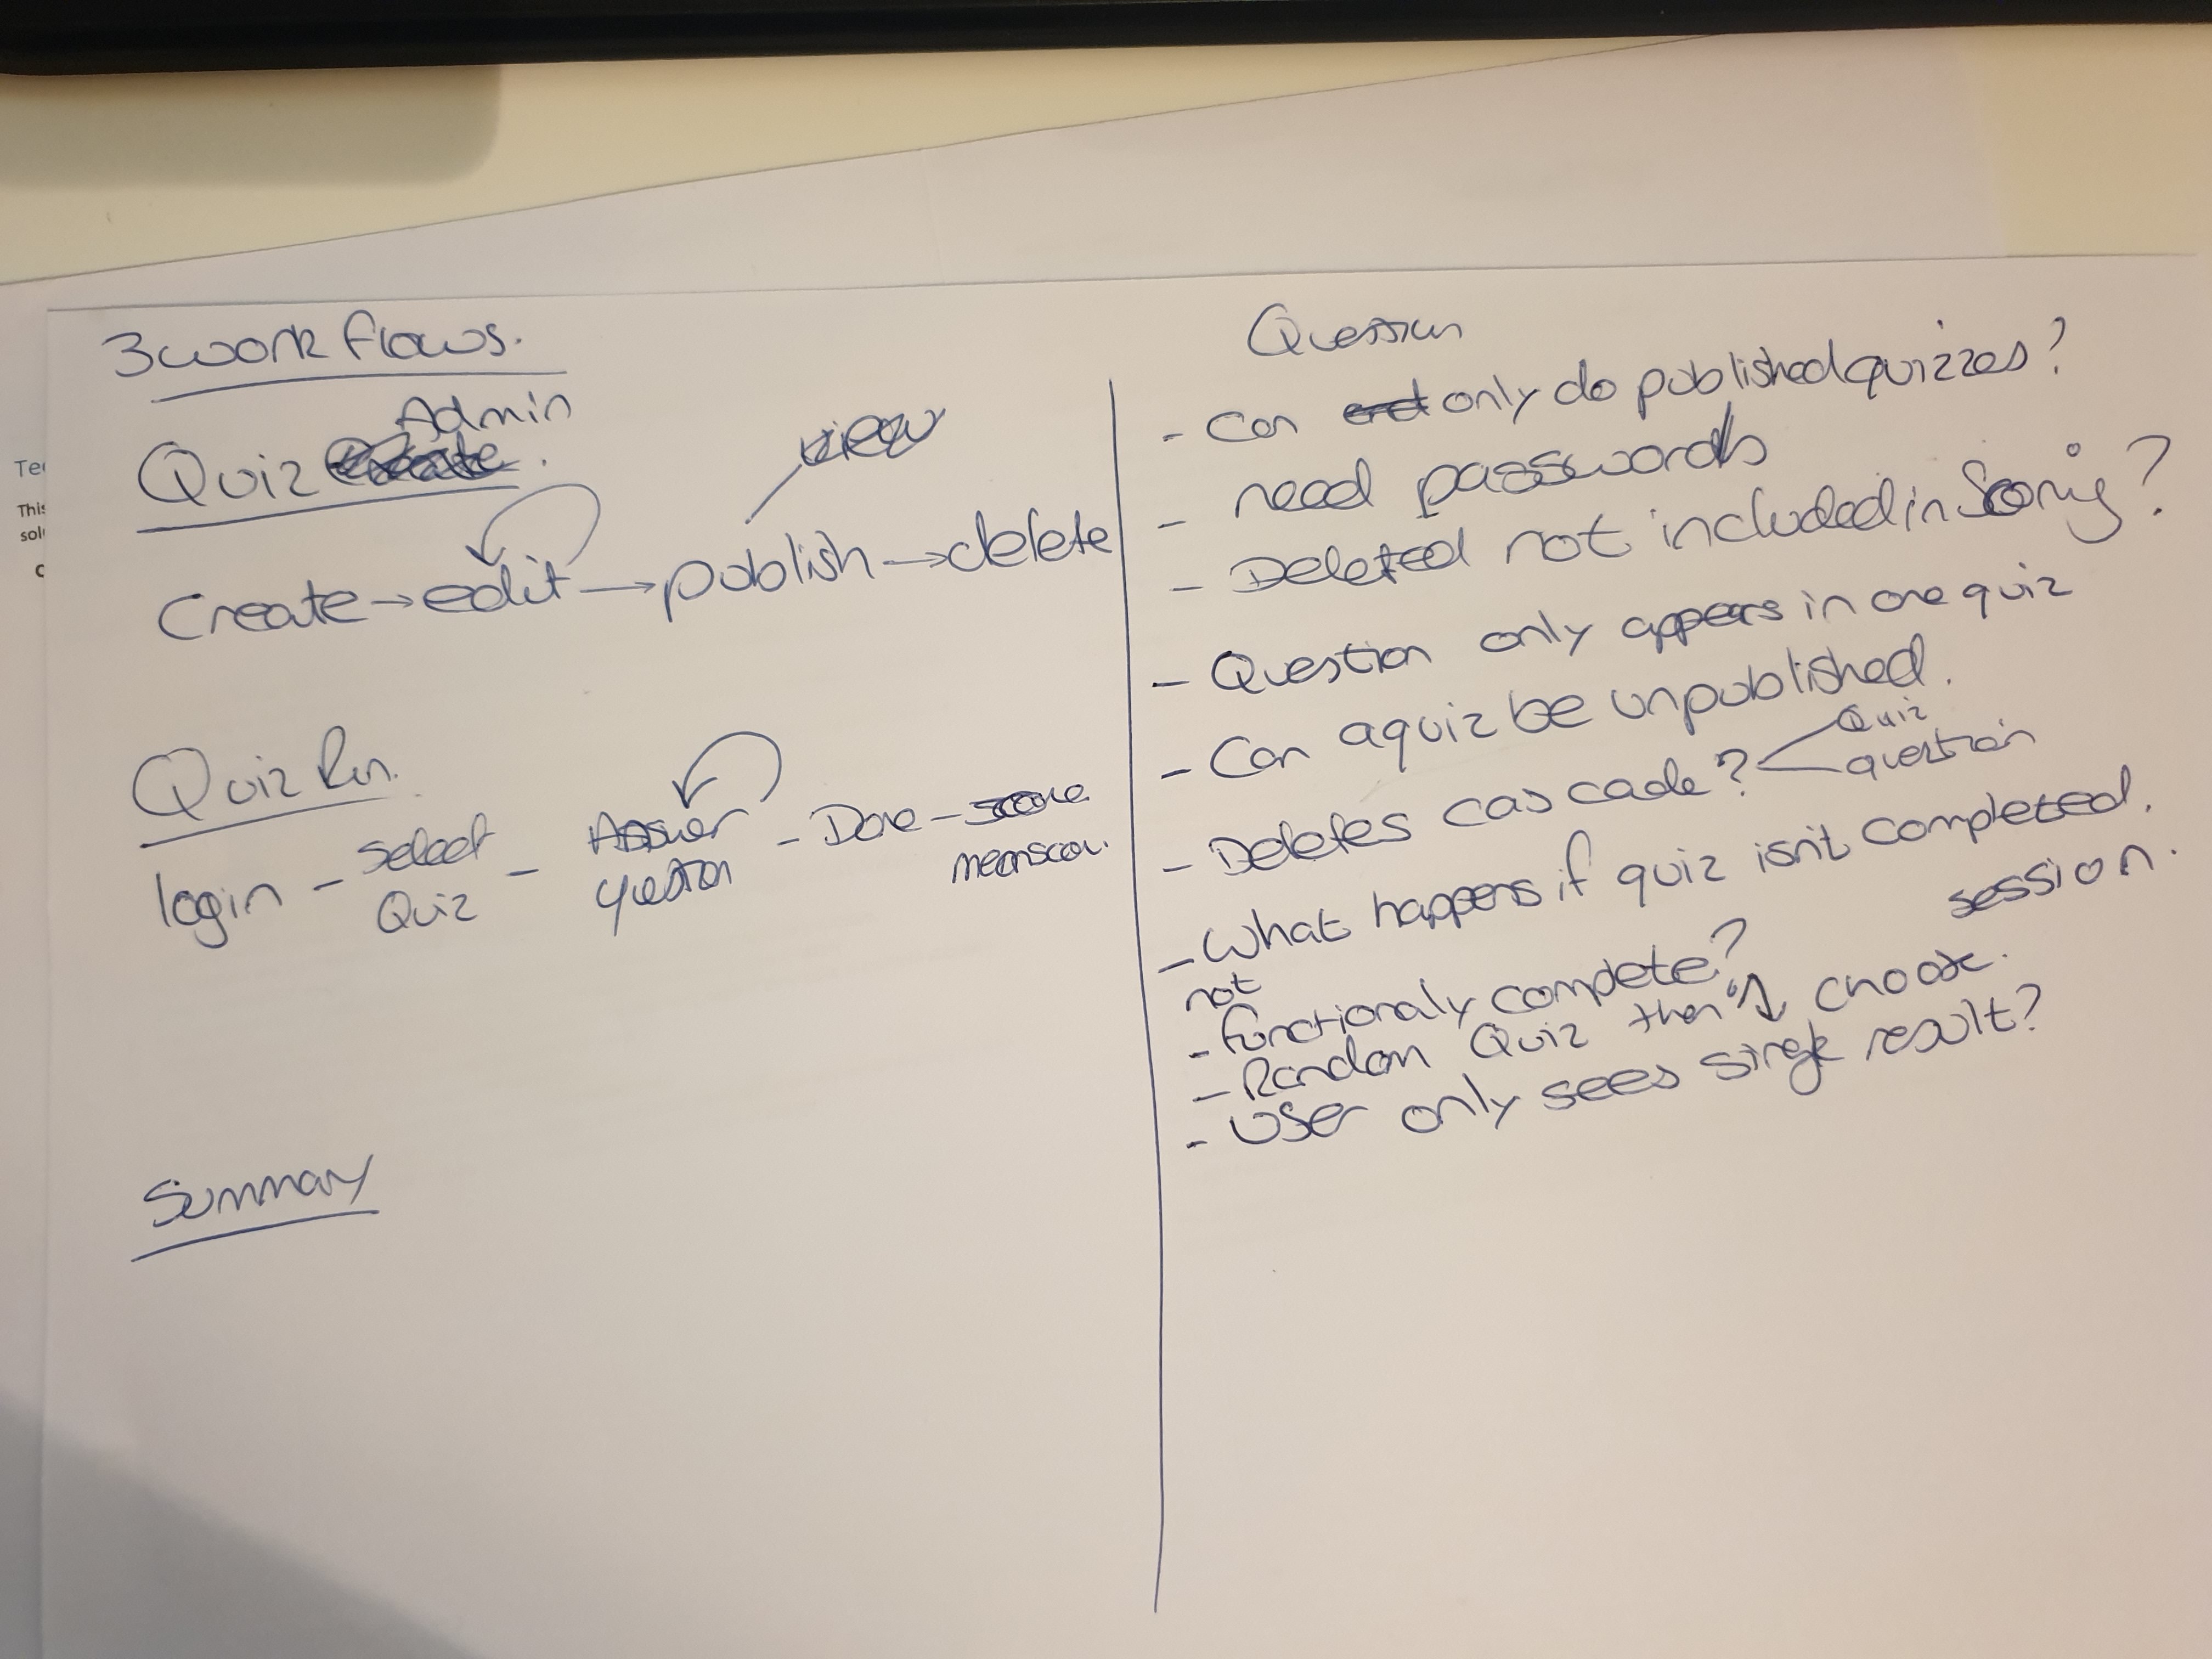 3 work flows.
Admin
Quiz
view
Create → edit → publish → delete
Quiz Run.
login - select Quiz - Answer question - Done - score
Summary
Question
- Can only do published quizzes?
- need passwords
- Deleted not included in Scoring?
- Question only appears in one quiz
- Can a quiz be unpublished.
- Deletes cascade? Quiz
question
- What happens if quiz isn't completed.
session.
not
- functionaly complete?
- Random Quiz then choose.
- User only sees single result?
Te
This
sol